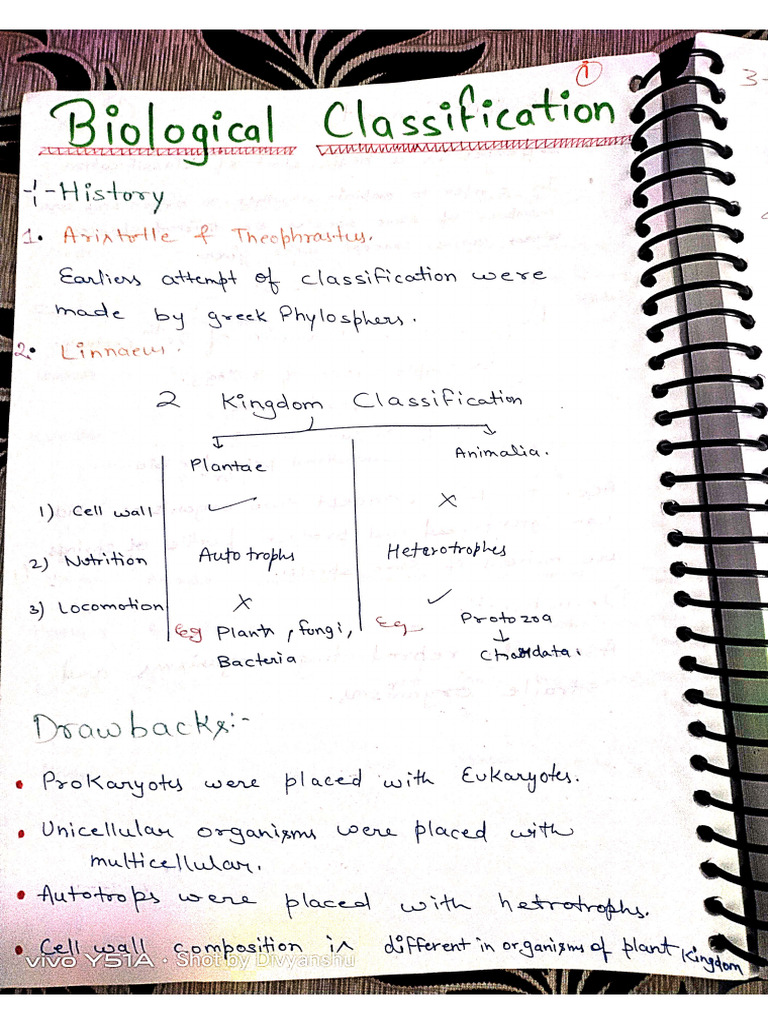 1
Biological Classification
-:- History
1. Aristotle & Theophrastus.
Earliers attempt of classification were
made by greek Phylosphers.
2. Linnaeus.
2 Kingdom Classification
Plantae Animalia.
1) Cell wall ✓ ×
2) Nutrition Autotrophs Heterotrophes
3) Locomotion × ✓
Eg Plants, fungi, Eg Protozoa
↓
Bacteria Chordata.
Drawbacks:-
• Prokaryotes were placed with Eukaryotes.
• Unicellular organisms were placed with
multicellular.
• Autotrops were placed with hetrotrophs.
• Cell wall composition is different in organisms of plant Kingdom
vivo Y51A • Shot by Divyanshu
3-